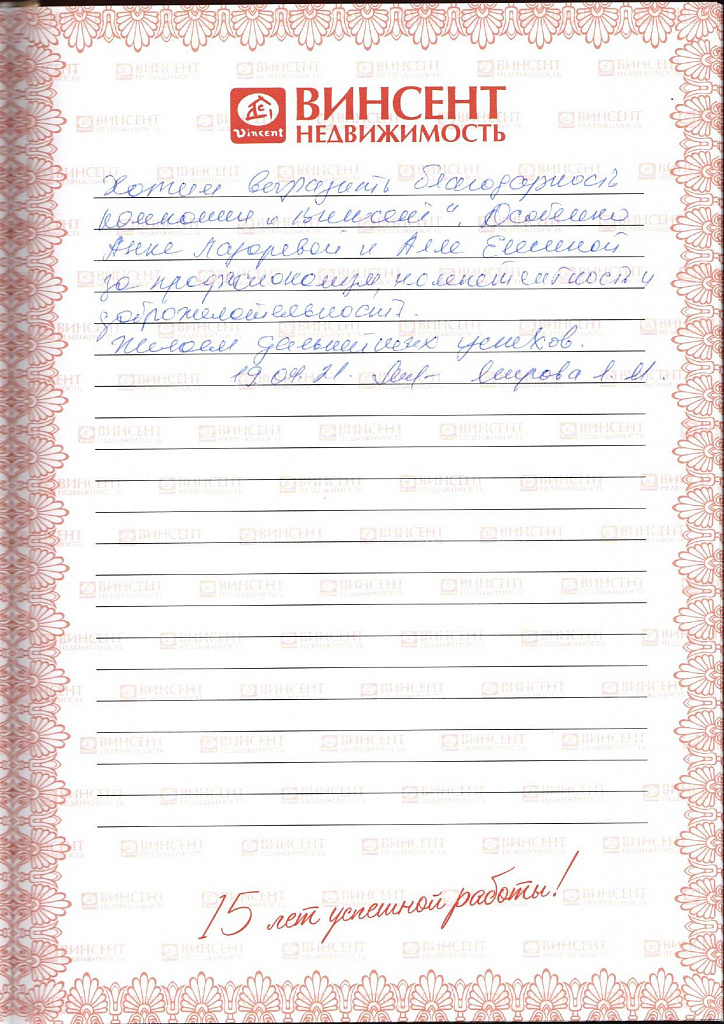 Vincent
ВИНСЕНТ
НЕДВИЖИМОСТЬ
Хотим выразить благодарность
компании „Винсент“. Особенно
Анне Лазаревой и Алле
за професионализм, компетентность и
доброжелательность.
Желаем дальнейших успехов.
19.04.21.
15 лет успешной работы!